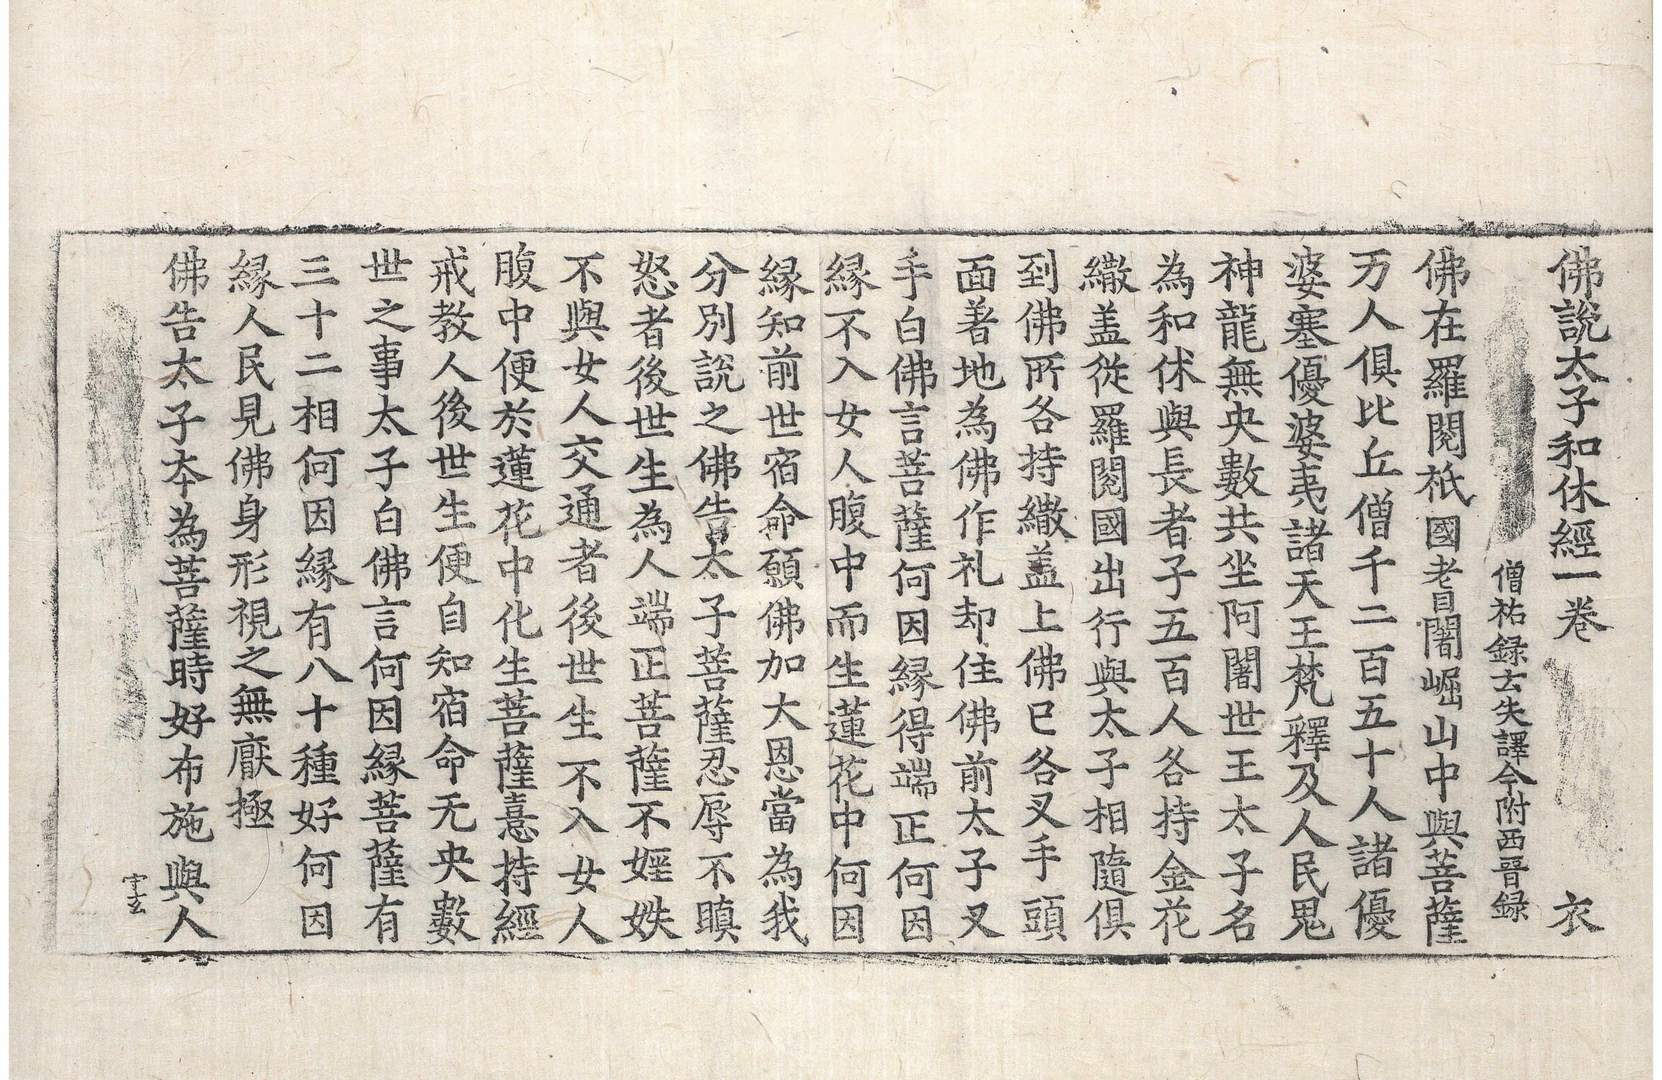 佛說太子和休經一卷　衣
僧祐録云失譯今附西晉録
佛在羅閱祇國耆闍崛山中與菩薩
万人俱比丘僧千二百五十人諸優
婆塞優婆夷諸天王梵釋及人民鬼
神龍無央數共坐阿闍世王太子名
為和休與長者子五百人各持金花
繖盖從羅閱國出行與太子相隨俱
到佛所各持繖盖上佛已各叉手頭
面著地為佛作礼却住佛前太子叉
手白佛言菩薩何因縁得端正何因
縁不入女人腹中而生蓮花中何因
縁知前世宿命願佛加大恩當為我
分別說之佛告太子菩薩忍辱不瞋
怒者後世生為人端正菩薩不婬妷
不與女人交通者後世生不入女人
腹中便於蓮花中化生菩薩憙持經
戒教人後世生便自知宿命无央數
世之事太子白佛言何因縁菩薩有
三十二相何因縁有八十種好何因
縁人民見佛身形視之無厭極
佛告太子本為菩薩時好布施與人
宇玄